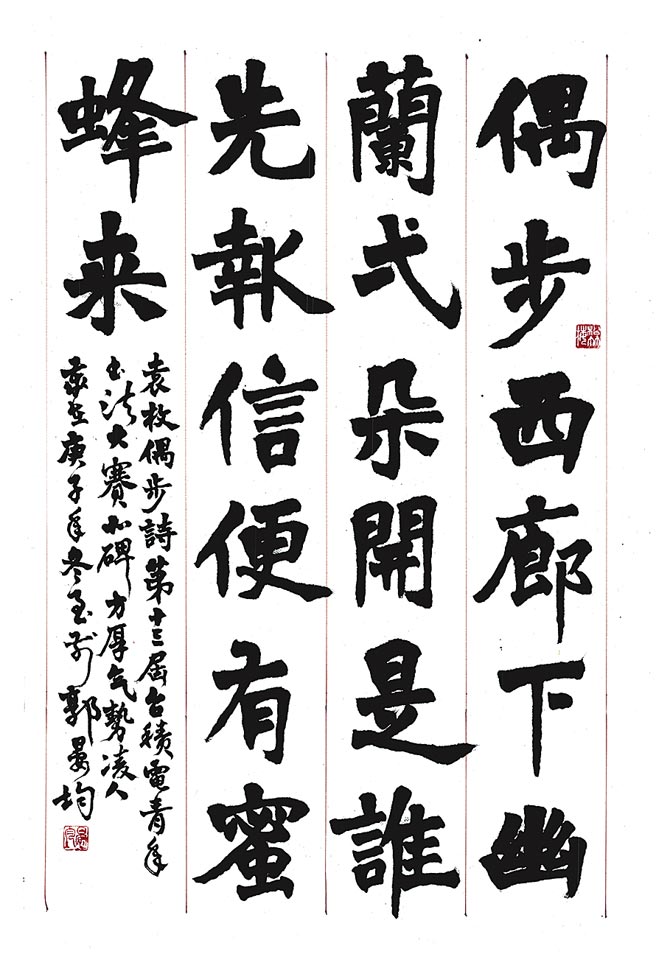 偶步西廊下幽
蘭弌朵開是誰
先報信便有蜜
蜂来
袁枚偶步詩第十三屆台積電青年
书法大賽北碑方厚气勢凌人
庚子年冬至前郭晏均